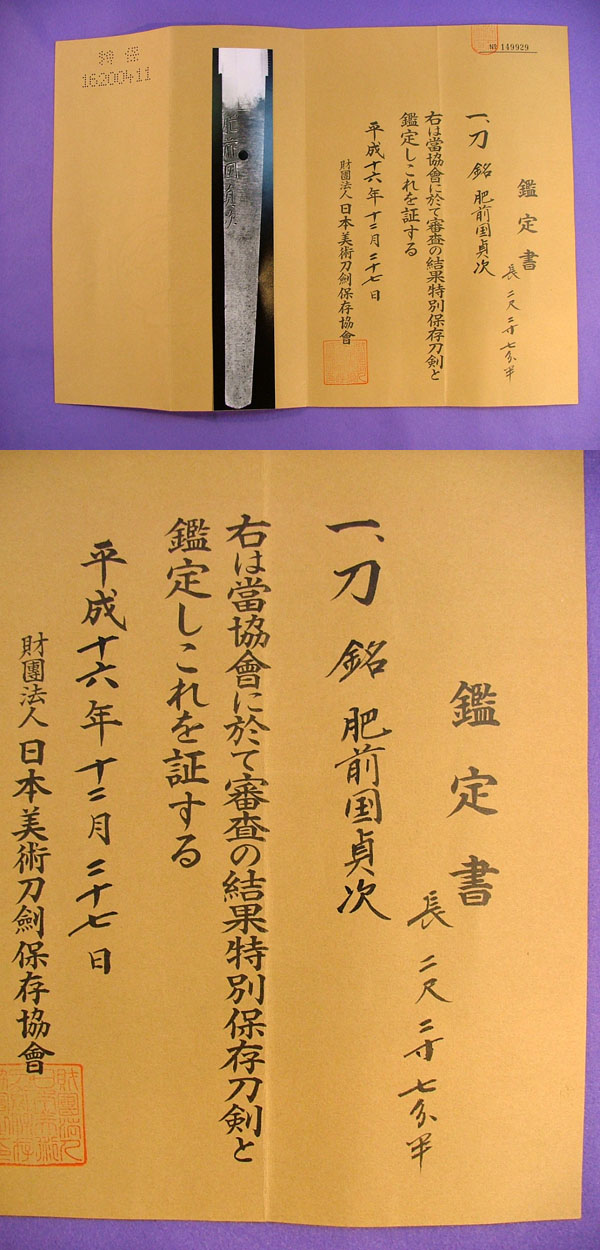 № 149929
鑑定書
長 二尺二寸七分半
一、刀 銘 肥前国貞次
右は當協會に於て審査の結果特別保存刀剣と
鑑定しこれを証する
平成十六年十二月二十七日
財團法人 日本美術刀劍保存協會
肥前国貞次
特 保
16200411
鑑定書
長 二尺二寸七分半
一、刀 銘 肥前国貞次
右は當協會に於て審査の結果特別保存刀剣と
鑑定しこれを証する
平成十六年十二月二十七日
財團法人 日本美術刀劍保存協會